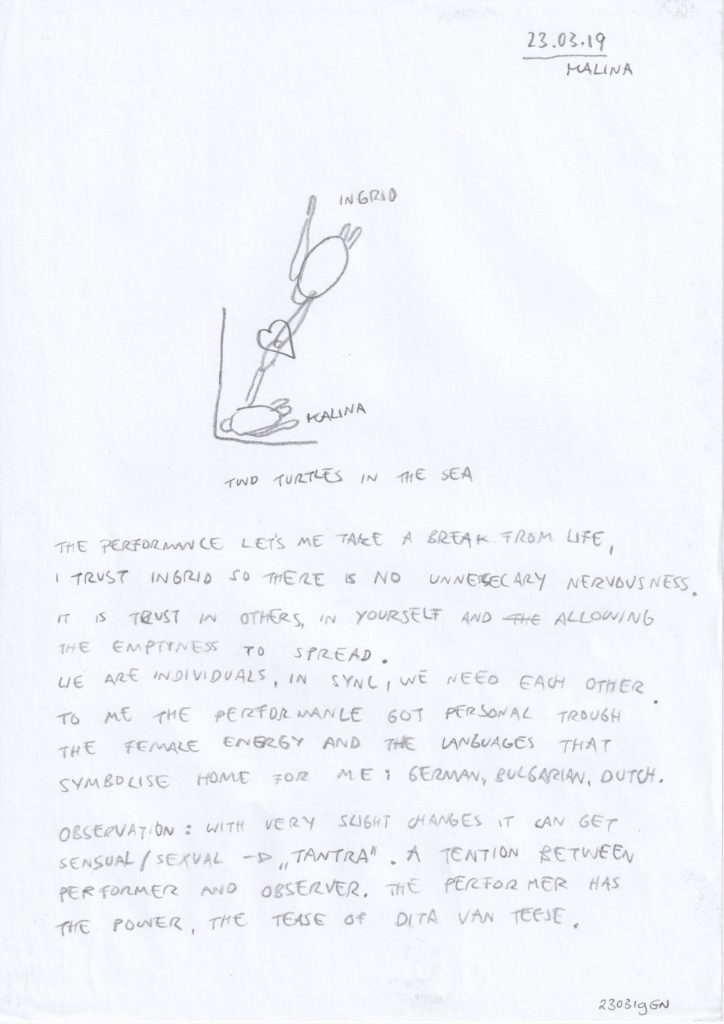 23.03.19
MALINA
INGRID
MALINA
TWO TURTLES IN THE SEA
THE PERFORMANCE LET'S ME TAKE A BREAK FROM LIFE,
I TRUST INGRID SO THERE IS NO UNNESSECARY NERVOUSNESS.
IT IS TRUST IN OTHERS, IN YOURSELF AND THE ALLOWING
THE EMPTYNESS TO SPREAD.
WE ARE INDIVIDUALS, IN SYNC, WE NEED EACH OTHER.
TO ME THE PERFORMANCE GOT PERSONAL TROUGH
THE FEMALE ENERGY AND THE LANGUAGES THAT
SYMBOLISE HOME FOR ME: GERMAN, BULGARIAN, DUTCH.
OBSERVATION: WITH VERY SLIGHT CHANGES IT CAN GET
SENSUAL/SEXUAL → „TANTRA“. A TENTION BETWEEN
PERFORMER AND OBSERVER. THE PERFORMER HAS
THE POWER, THE TEASE OF DITA VAN TEESE.
230319GN